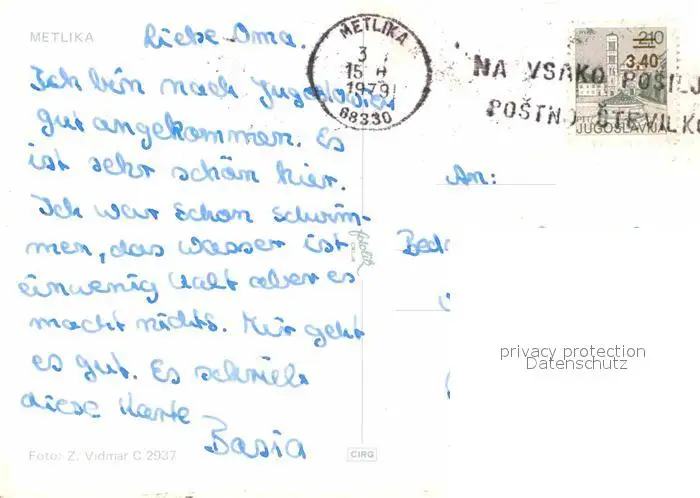 METLIKA
Liebe Oma.
Ich bin nach Jugoslawien
gut angekommen. Es
ist sehr schön hier.
Ich war schon schwim-
men, das wasser ist
einwenig kalt aber es
macht nichts. Mir geht
es gut. Es schrieb
diese Karte
Basia
Foto: Z. Vidmar C 2937
fotolik
celje
CIRG
METLIKA
3
15
1979
68330
NA VSAKO POŠILJ
POŠTNO ŠTEVILKO
2.10
3,40
PTUJ
JUGOSLAVIJA
An:
privacy protection
Datenschutz